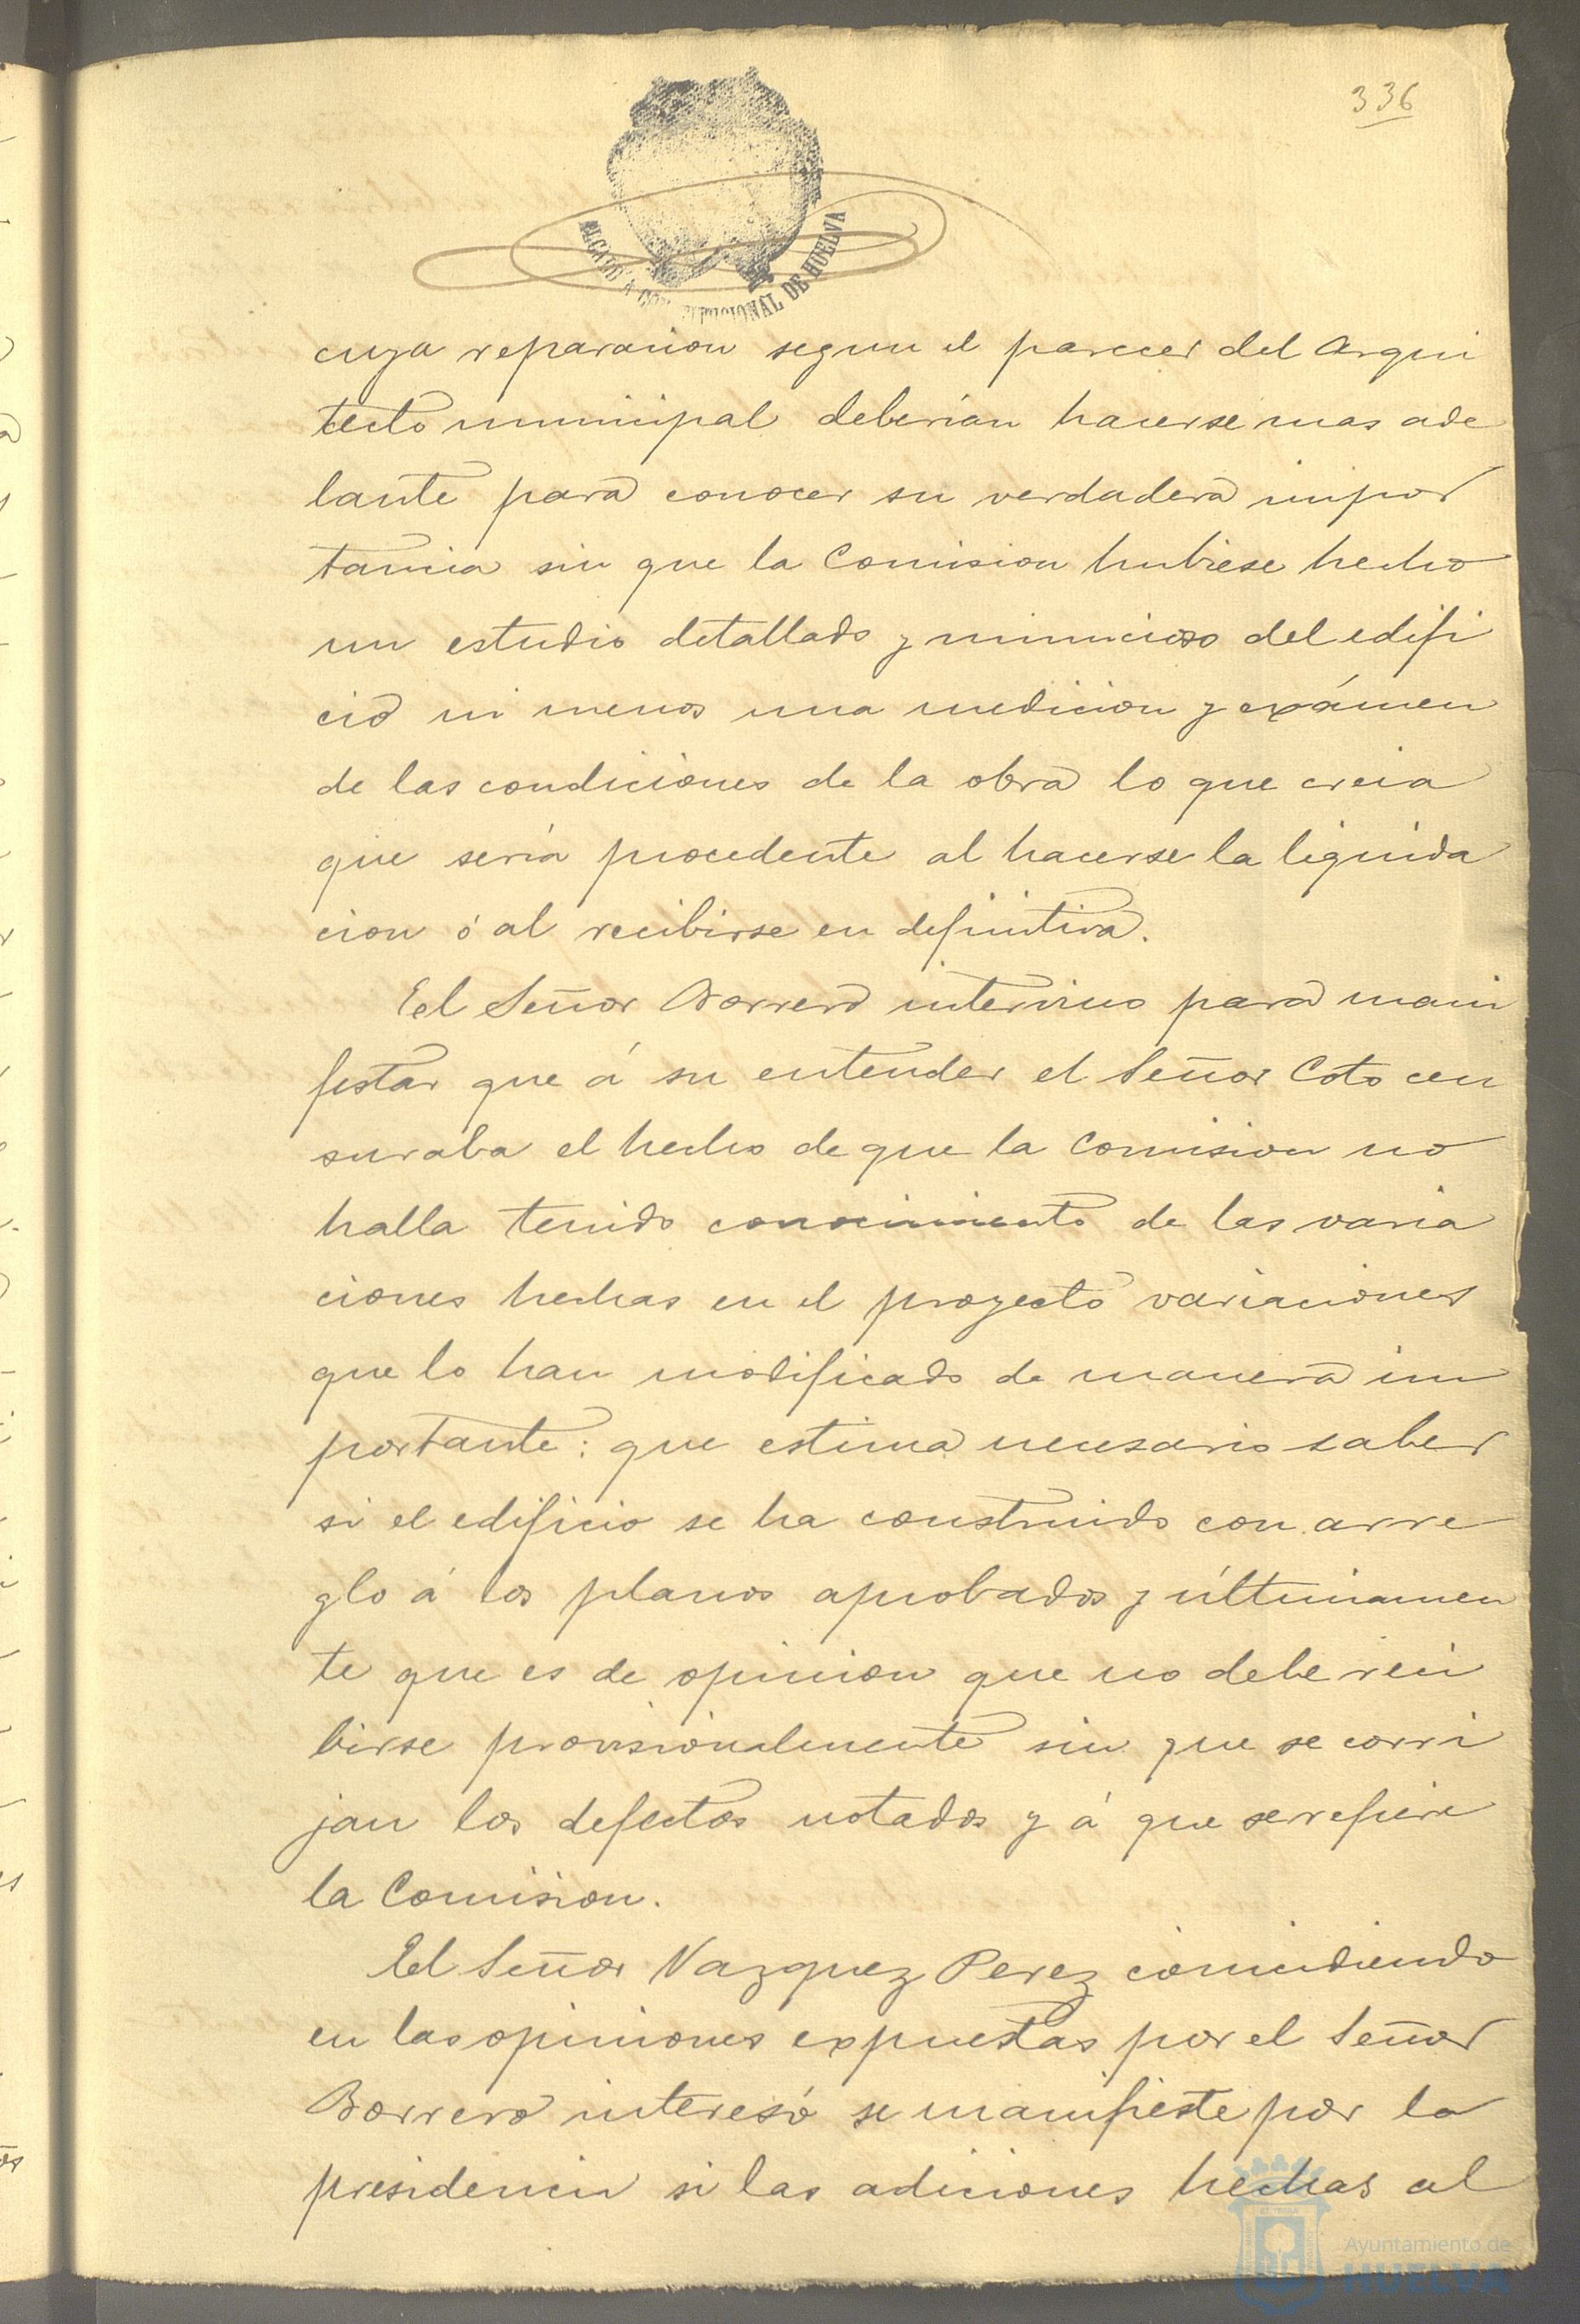 336
ALCALD A CO TITUCIONAL DE HUELVA
cuya reparacion segun el parecer del Arqui
tecto municipal deberian hacerse mas ade
lante para conocer su verdadera impor
tancia sin que la Comision hubiese hecho
un estudio detallado y minucioso del edifi
cio ni menos una medicion y exámen
de las condiciones de la obra lo que creia
que sería procedente al hacerse la liquida
cion ó al recibirse en definitiva.
El Señor Borrero intervino para mani
festar que á su entender el Señor Coto cen
suraba el hecho de que la Comision no
halla tenido conocimiento de las varia
ciones hechas en el proyecto variaciones
que lo han modificado de manera im
portante: que estima necesario saber
si el edificio se ha construido con arre
glo á los planos aprobados y últimamen
te que es de opinion que no debe reci
birse provisionalmente sin que se corri
jan los defectos notados y á que se refiere
la Comision.
El Señor Vazquez Perez coincidiendo
en las opiniones expuestas por el Señor
Borrero interesó se manifieste por la
presidencia si las adiciones hechas al
Ayuntamiento de
HUELVA